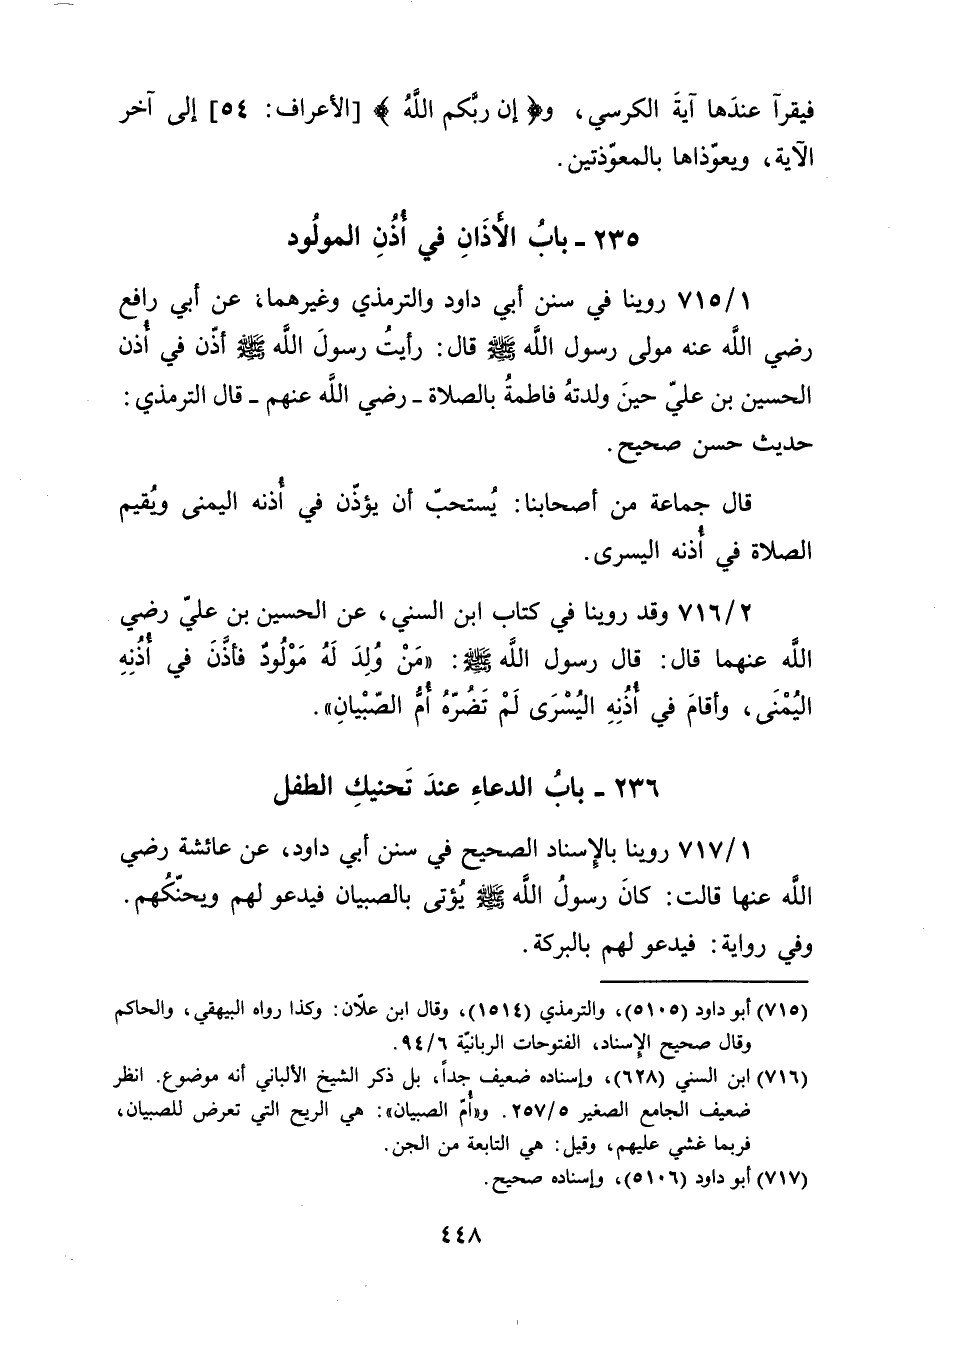 فيقرآ عندَها آيةَ الكرسي، و﴿ إن ربَّكم اللَّهُ ﴾ [الأعراف: ٥٤] إلى آخر
الآية، ويعوّذاها بالمعوّذتين.
٢٣٥ ـ بابُ الأَذَانِ في أُذُنِ المولُود
٧١٥/١ روينا في سنن أبي داود والترمذي وغيرهما، عن أبي رافع
رضي اللَّه عنه مولى رسول اللَّه ﷺ قال: رأيتُ رسولَ اللَّه ﷺ أذّن في أُذن
الحسين بن عليّ حينَ ولدتهُ فاطمةُ بالصلاة ـ رضي اللَّه عنهم ـ قال الترمذي:
حديث حسن صحيح.
قال جماعة من أصحابنا: يُستحبّ أن يؤذّن في أُذنه اليمنى ويُقيم
الصلاة في أُذنه اليسرى.
٧١٦/٢ وقد روينا في كتاب ابن السني، عن الحسين بن عليّ رضي
اللَّه عنهما قال: قال رسول اللَّه ﷺ: «مَنْ وُلِدَ لَهُ مَوْلُودٌ فأذَّنَ في أُذُنِهِ
اليُمْنَى، وأقامَ في أُذُنِهِ اليُسْرَى لَمْ تَضُرّهُ أُمُّ الصّبْيانِ».
٢٣٦ ـ بابُ الدعاءِ عندَ تَحنيكِ الطفل
٧١٧/١ روينا بالإِسناد الصحيح في سنن أبي داود، عن عائشة رضي
اللَّه عنها قالت: كانَ رسولُ اللَّه ﷺ يُؤتى بالصبيان فيدعو لهم ويحنّكُهم.
وفي رواية: فيدعو لهم بالبركة.
(٧١٥) أبو داود (٥١٠٥)، والترمذي (١٥١٤)، وقال ابن علّان: وكذا رواه البيهقي، والحاكم
وقال صحيح الإِسناد، الفتوحات الربانيّة ٩٤/٦.
(٧١٦) ابن السني (٦٢٨)، وإسناده ضعيف جداً، بل ذكر الشيخ الألباني أنه موضوع. انظر
ضعيف الجامع الصغير ٢٥٧/٥. و«أُمّ الصبيان»: هي الريح التي تعرض للصبيان،
فربما غشي عليهم، وقيل: هي التابعة من الجن.
(٧١٧) أبو داود (٥١٠٦)، وإسناده صحيح.
٤٤٨